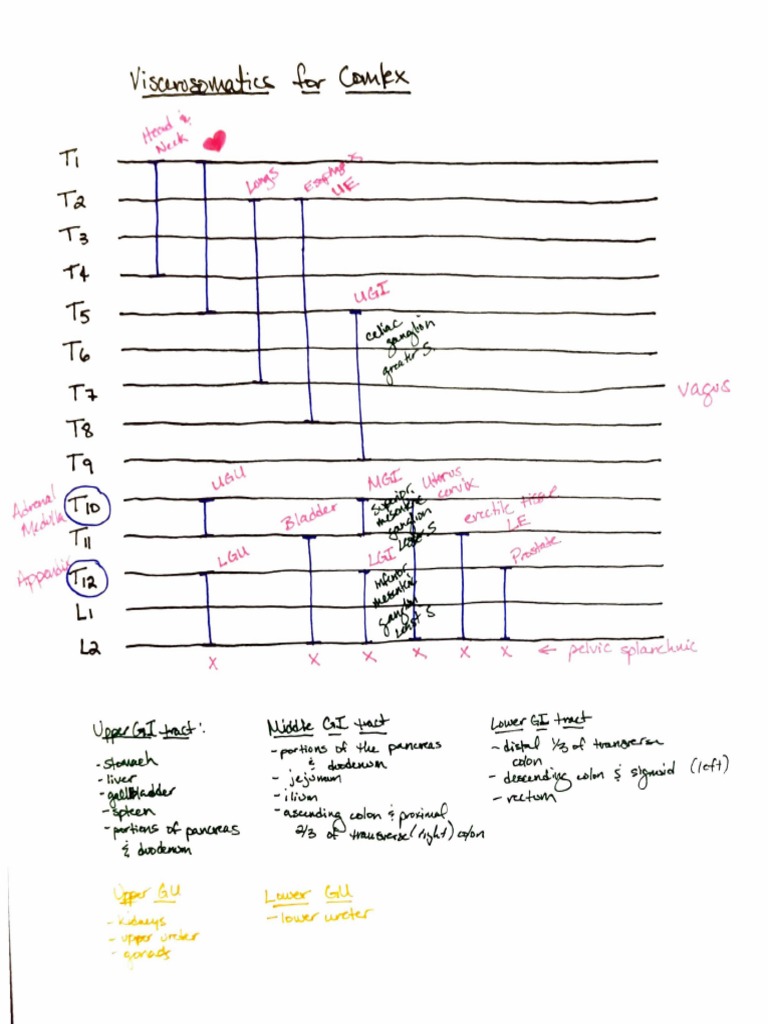 Viscerosomatics for Comlex
Head &
Neck
Lungs
Esophagus
UE
T1
T2
T3
T4
T5
T6
T7
T8
T9
T10
T11
T12
L1
L2
UGI
celiac
ganglion
greater S.
Vagus
Adrenal
Medulla
Appendix
UGU
MGI
superior
mesenteric
ganglion
Lesser S
Uterus
cervix
Bladder
erectile tissue
LE
LGU
LGI
inferior
mesenteric
ganglion
Least S
Prostate
x x x x x x ← pelvic splanchnic
Upper GI tract:
- stomach
- liver
- gallbladder
- spleen
- portions of pancreas
& duodenum
Middle GI tract
- portions of the pancreas
& duodenum
- jejunum
- ilium
- ascending colon & proximal
2/3 of transverse (right) colon
Lower GI tract
- distal 1/3 of transverse
colon
- descending colon & sigmoid (left)
- rectum
Upper GU
- kidneys
- upper ureter
- gonads
Lower GU
- lower ureter